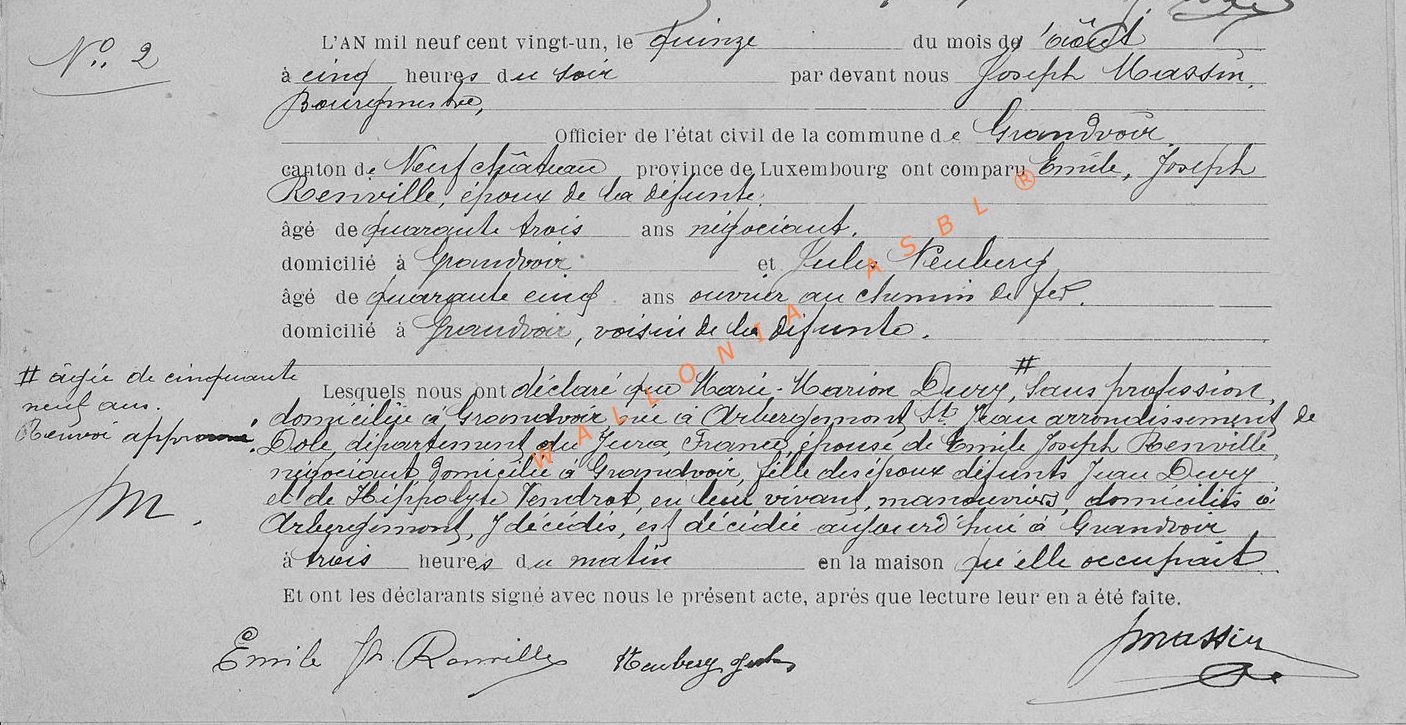 N° 2
L'AN mil neuf cent vingt-un, le quinze du mois de août
à cinq heures du soir par devant nous Joseph Massin,
Bourgmestre,
Officier de l'état civil de la commune de Grandvoir
canton de Neufchâteau province de Luxembourg ont comparu Emile, Joseph
Renville, époux de la défunte,
âgé de quarante trois ans négociant,
domicilié à Grandvoir et Jules Neuberg
âgé de quarante cinq ans ouvrier au chemin de fer.
domicilié à Grandvoir, voisin de la défunte.
# âgée de cinquante
neuf ans.
Renvoi approuvé.
JM.
Lesquels nous ont déclaré que Marie-Marion Dury, # Sans profession,
domiciliée à Grandvoir née à Arbergemont St. Jean arrondissement de
Dole, département du Jura, France, épouse de Emile Joseph Renville,
négociant domicilié à Grandvoir, fille des époux défunts Jean Dury
et de Hippolyte Jendrot, en leur vivant, manouvriers, domiciliés à
Arbergemont, y décédés, est décédée aujourd'hui à Grandvoir
à trois heures du matin en la maison qu'elle occupait
Et ont les déclarants signé avec nous le présent acte, après que lecture leur en a été faite.
Emile Jh. Renville Neuberg Jules JMassin
WALLONIA ASBL ®